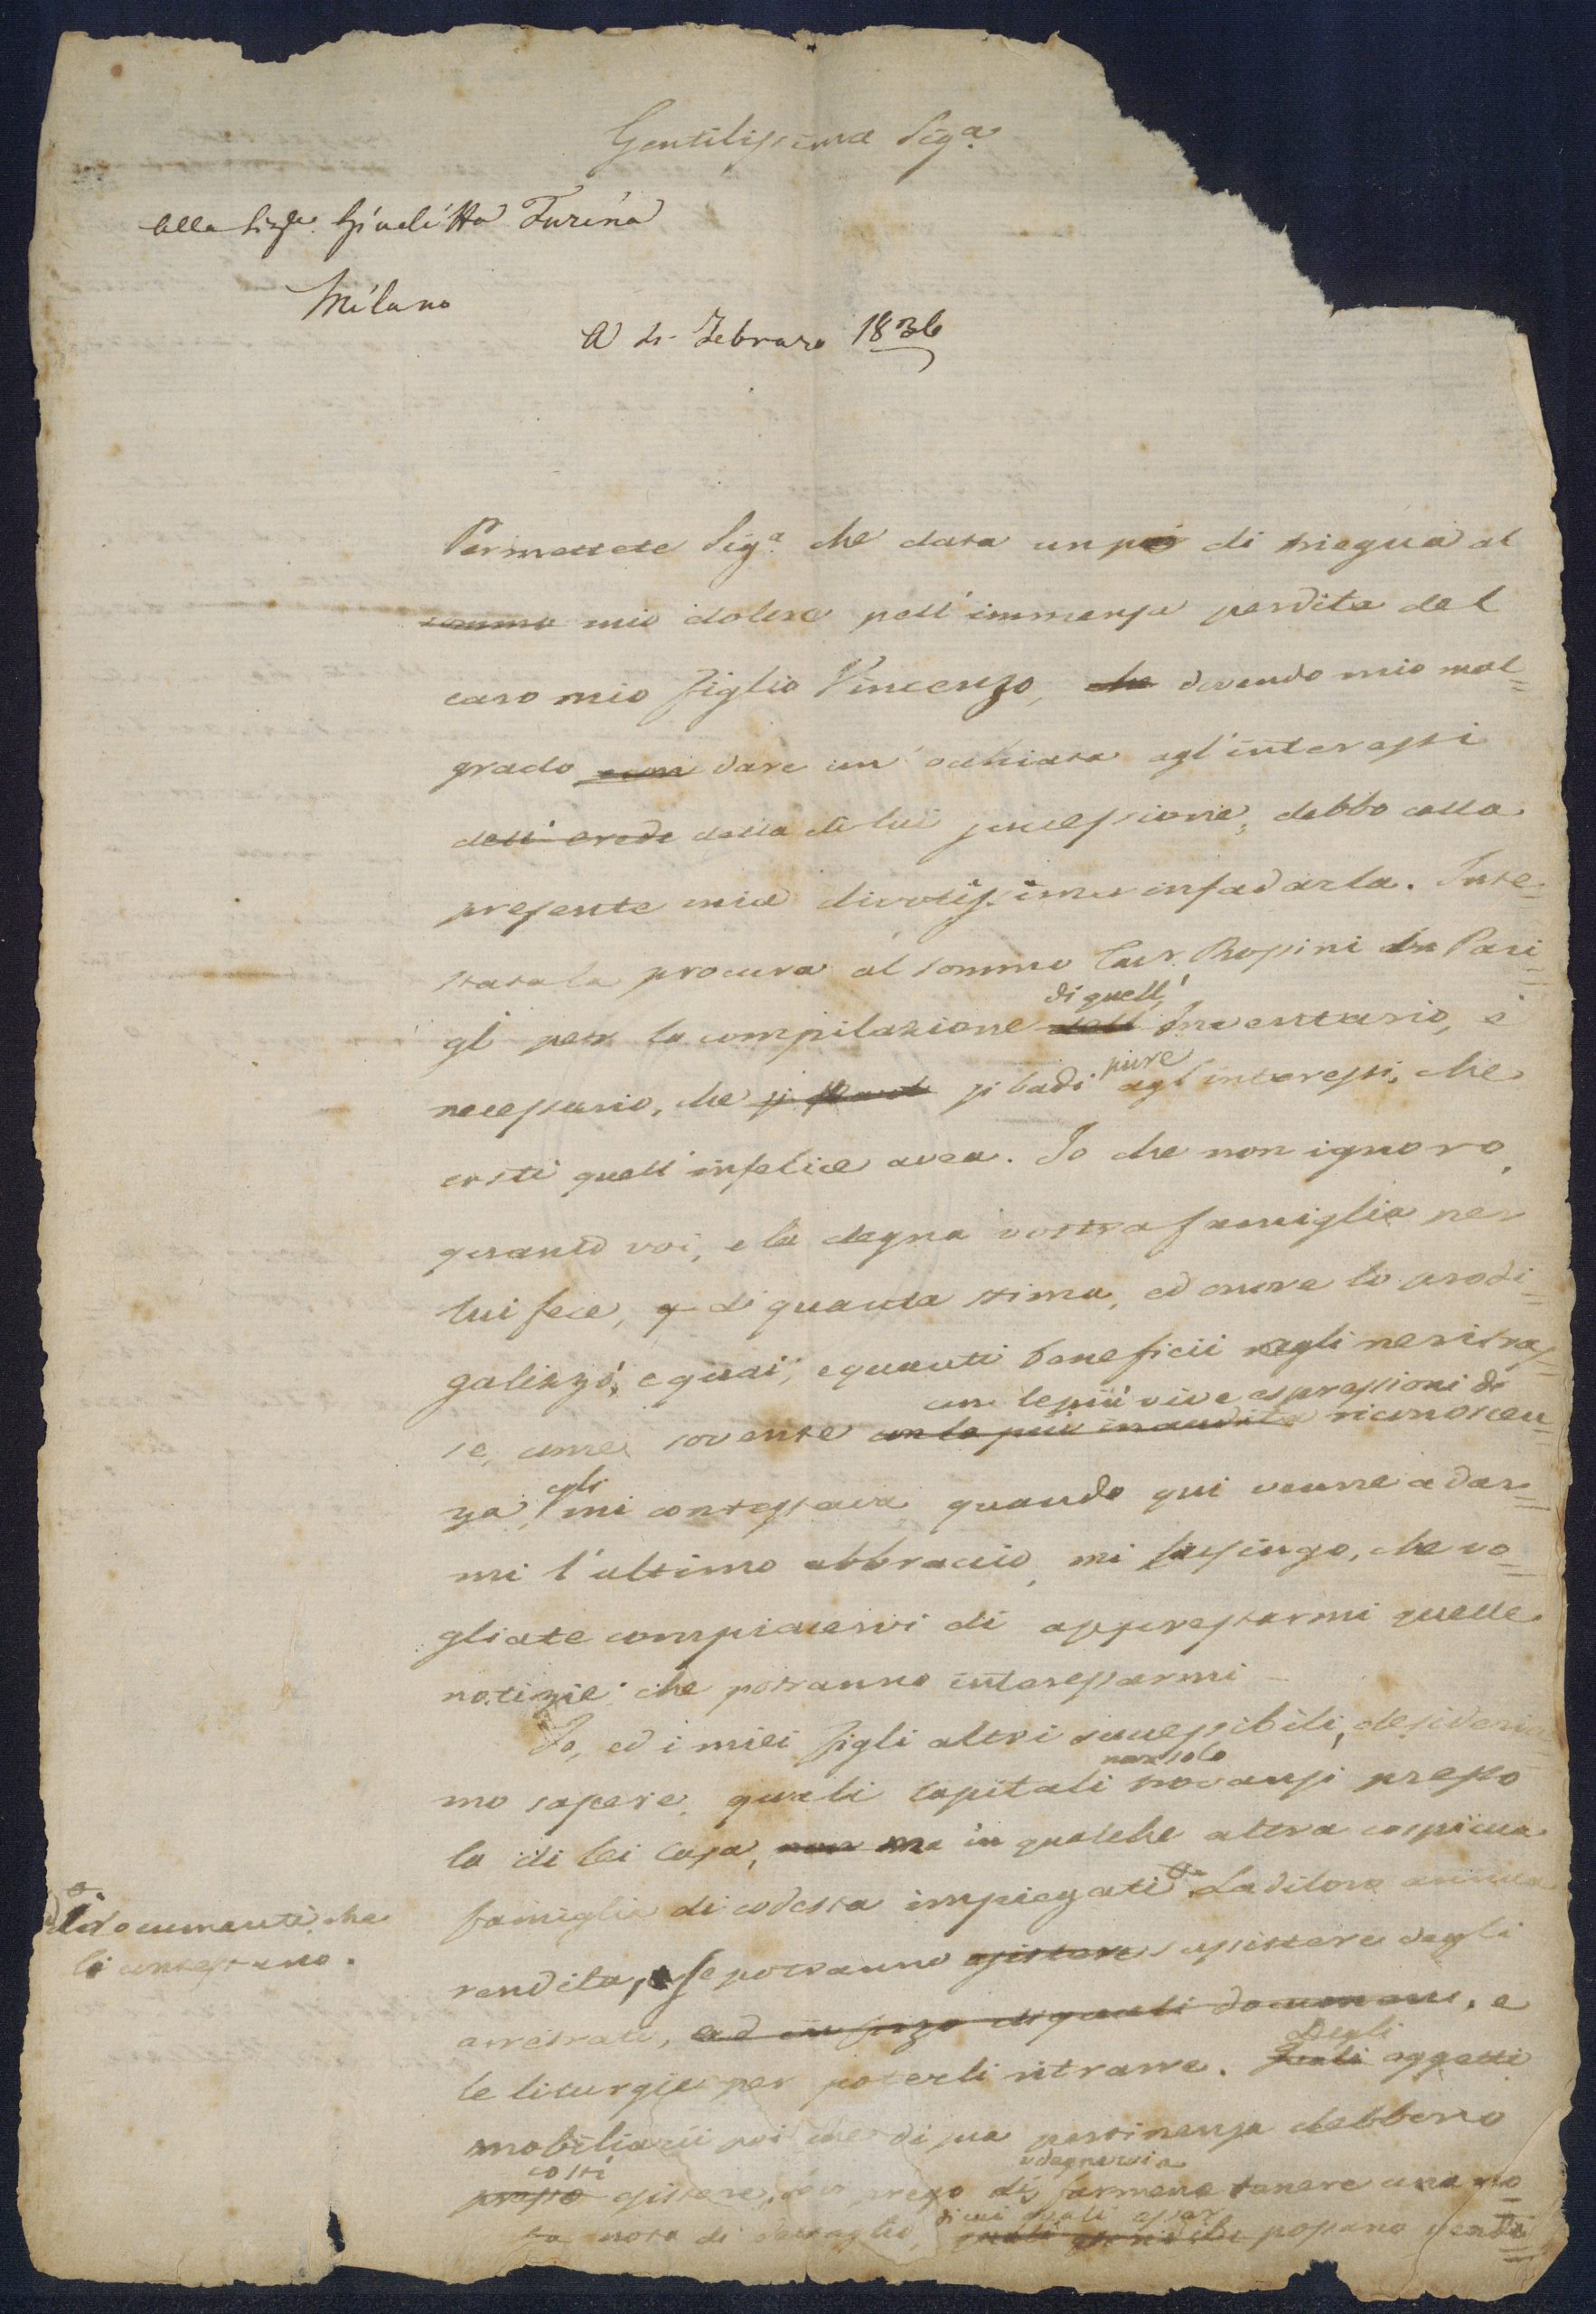 Gentilissima Sig.a
Alla Sig.a Giuditta Turina
Milano
A Febraro 1836
Permettete Sig.a che data un pò di triegua al
sommo mio dolore pell'immensa perdita del
caro mio figlio Vincenzo, che dovendo mio mal=
grado dare un'occhiata agl'interessi
dell'erede della di lui successione, debbo colla
presente mia divotissima infadarla. Inte=
stata la procura al sommo Cav.r Rossini in Pari=
gi per la compilazione dell di quell' Inventario, è
necessario, che si si badi pure agl'interessi, che
costì quell'infelice avea. Io che non ignoro,
quanto voi, e la degna vostra famiglia per
lui fece, di quanta stima, ed onore lo prodi=
galizzò, e quai, e quanti beneficii egli ne ritras=
se, come sovente con la più inaudita con le più vive espressioni di riconoscen=
za, egli mi contestava quando qui venne a dar=
mi l'ultimo abbraccio, mi lusingo, che vo=
gliate compiacervi di apprestarmi quelle
notizie che potranno interessarmi
Io, ed i miei figli altri successibili, desideria
mo sapere, quali capitali non solo trovansi presso
la di lei casa, non ma in qualche altra cospicua
famiglia di codesta impiegati. La di loro annua
i documenti che
li contestano.
rendita, e se potranno esistere sussistere degli
arretrati, e
le liturgie per poterli ritrarre. Degli oggetti
mobiliarii poi che di sua pertinenza debbono
presso costì esistere, prego di farmene tenere una no
ta nota di dettaglio, di cui quali possano vendi=